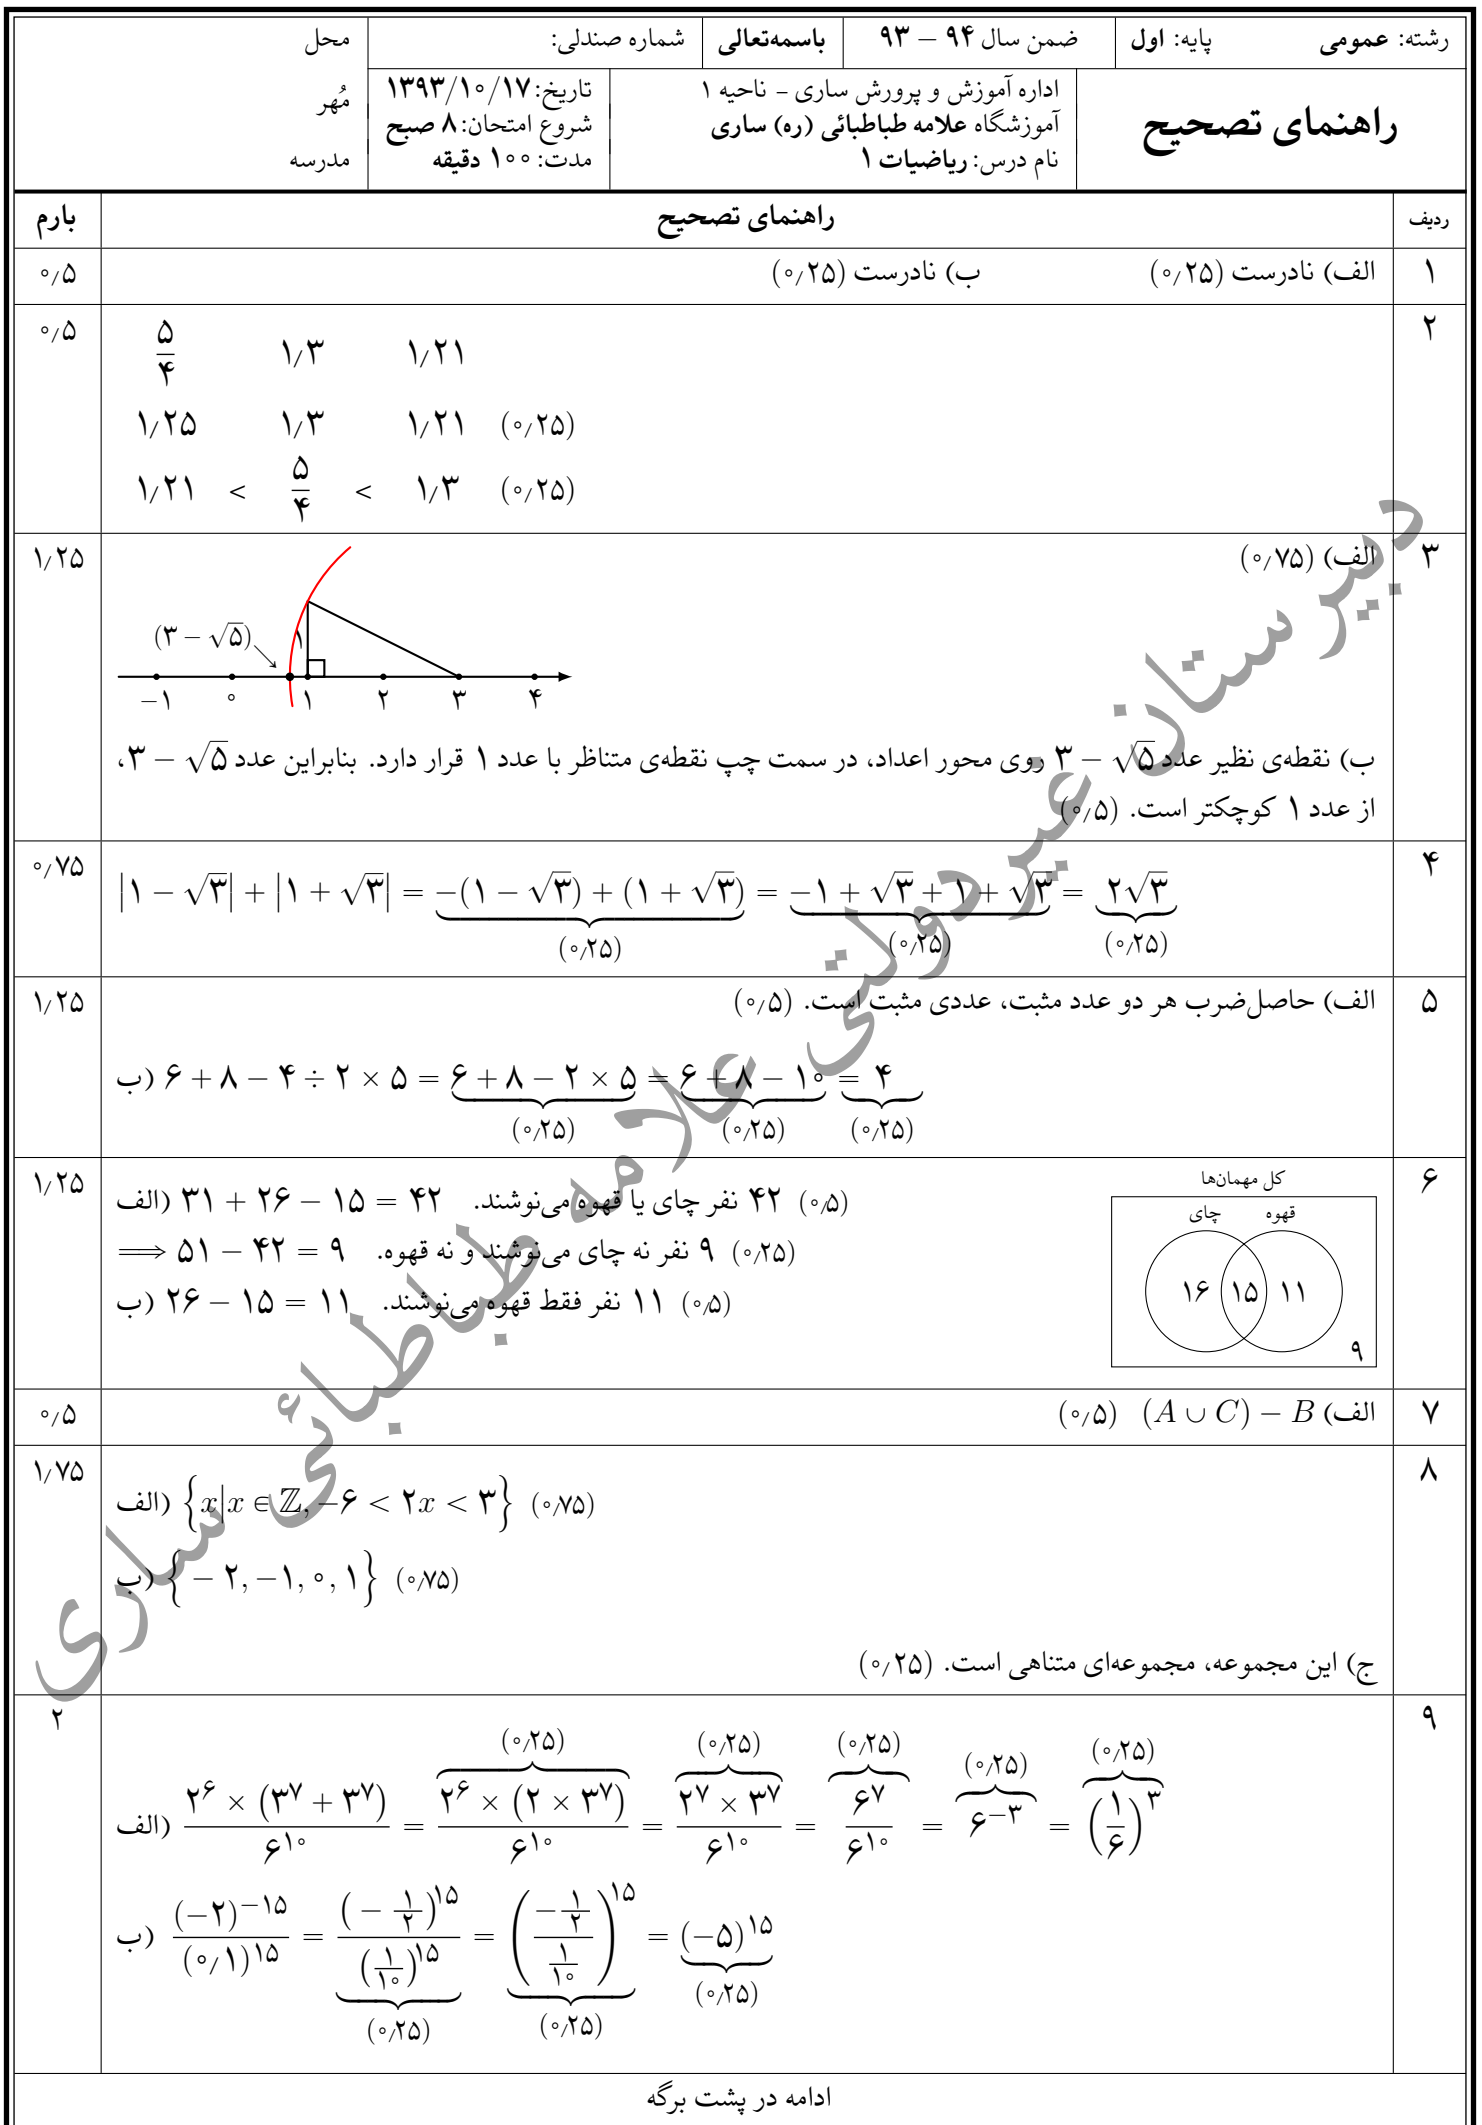 رشته: عمومی پایه: اول ضمن سال ۹۴ − ۹۳ باسمه‌تعالی شماره صندلی: محل
راهنمای تصحیح
اداره آموزش و پرورش ساری - ناحیه ۱
آموزشگاه علامه طباطبائی (ره) ساری
نام درس: ریاضیات ۱
تاریخ: ۱۳۹۳/۱۰/۱۷
شروع امتحان: ۸ صبح
مدت: ۱۰۰ دقیقه
مُهر
مدرسه
ردیف راهنمای تصحیح بارم
۱ الف) نادرست (۰٫۲۵) ب) نادرست (۰٫۲۵) ۰٫۵
۲ ۰٫۵
۵/۴ ۱٫۳ ۱٫۲۱
۱٫۲۵ ۱٫۳ ۱٫۲۱ (۰٫۲۵)
۱٫۲۱ < ۵/۴ < ۱٫۳ (۰٫۲۵)
۳ الف) (۰٫۷۵) ۱٫۲۵
(۳ − √۵) ۱
−۱ ۰ ۱ ۲ ۳ ۴
ب) نقطه‌ی نظیر عدد ۳ − √۵ روی محور اعداد، در سمت چپ نقطه‌ی متناظر با عدد ۱ قرار دارد. بنابراین عدد ۳ − √۵،
از عدد ۱ کوچکتر است. (۰٫۵)
۴ ۰٫۷۵
|۱ − √۳| + |۱ + √۳| = −(۱ − √۳) + (۱ + √۳) = −۱ + √۳ + ۱ + √۳ = ۲√۳
(۰٫۲۵) (۰٫۲۵) (۰٫۲۵)
۵ الف) حاصل‌ضرب هر دو عدد مثبت، عددی مثبت است. (۰٫۵) ۱٫۲۵
ب) ۶ + ۸ − ۴ ÷ ۲ × ۵ = ۶ + ۸ − ۲ × ۵ = ۶ + ۸ − ۱۰ = ۴
(۰٫۲۵) (۰٫۲۵) (۰٫۲۵)
۶ ۱٫۲۵
الف) ۳۱ + ۲۶ − ۱۵ = ۴۲ ۴۲ نفر چای یا قهوه می‌نوشند. (۰٫۵)
⟹ ۵۱ − ۴۲ = ۹ ۹ نفر نه چای می‌نوشند و نه قهوه. (۰٫۲۵)
ب) ۲۶ − ۱۵ = ۱۱ ۱۱ نفر فقط قهوه می‌نوشند. (۰٫۵)
کل مهمان‌ها
چای قهوه
۱۶ ۱۵ ۱۱
۹
۷ الف) (A ∪ C) − B (۰٫۵) ۰٫۵
۸ ۱٫۷۵
الف) {x|x ∈ ℤ, −۶ < ۲x < ۳} (۰٫۷۵)
ب) {−۲, −۱, ۰, ۱} (۰٫۷۵)
ج) این مجموعه، مجموعه‌ای متناهی است. (۰٫۲۵)
۹ ۲
(۰٫۲۵) (۰٫۲۵) (۰٫۲۵) (۰٫۲۵) (۰٫۲۵)
الف) ۲^۶ × (۳^۷ + ۳^۷) / ۶^۱۰ = ۲^۶ × (۲ × ۳^۷) / ۶^۱۰ = ۲^۷ × ۳^۷ / ۶^۱۰ = ۶^۷ / ۶^۱۰ = ۶^−۳ = (۱/۶)^۳
ب) (−۲)^−۱۵ / (۰٫۱)^۱۵ = (−۱/۲)^۱۵ / (۱/۱۰)^۱۵ = ((−۱/۲) / (۱/۱۰))^۱۵ = (−۵)^۱۵
(۰٫۲۵) (۰٫۲۵) (۰٫۲۵)
ادامه در پشت برگه
دبیرستان غیردولتی علامه طباطبائی ساری